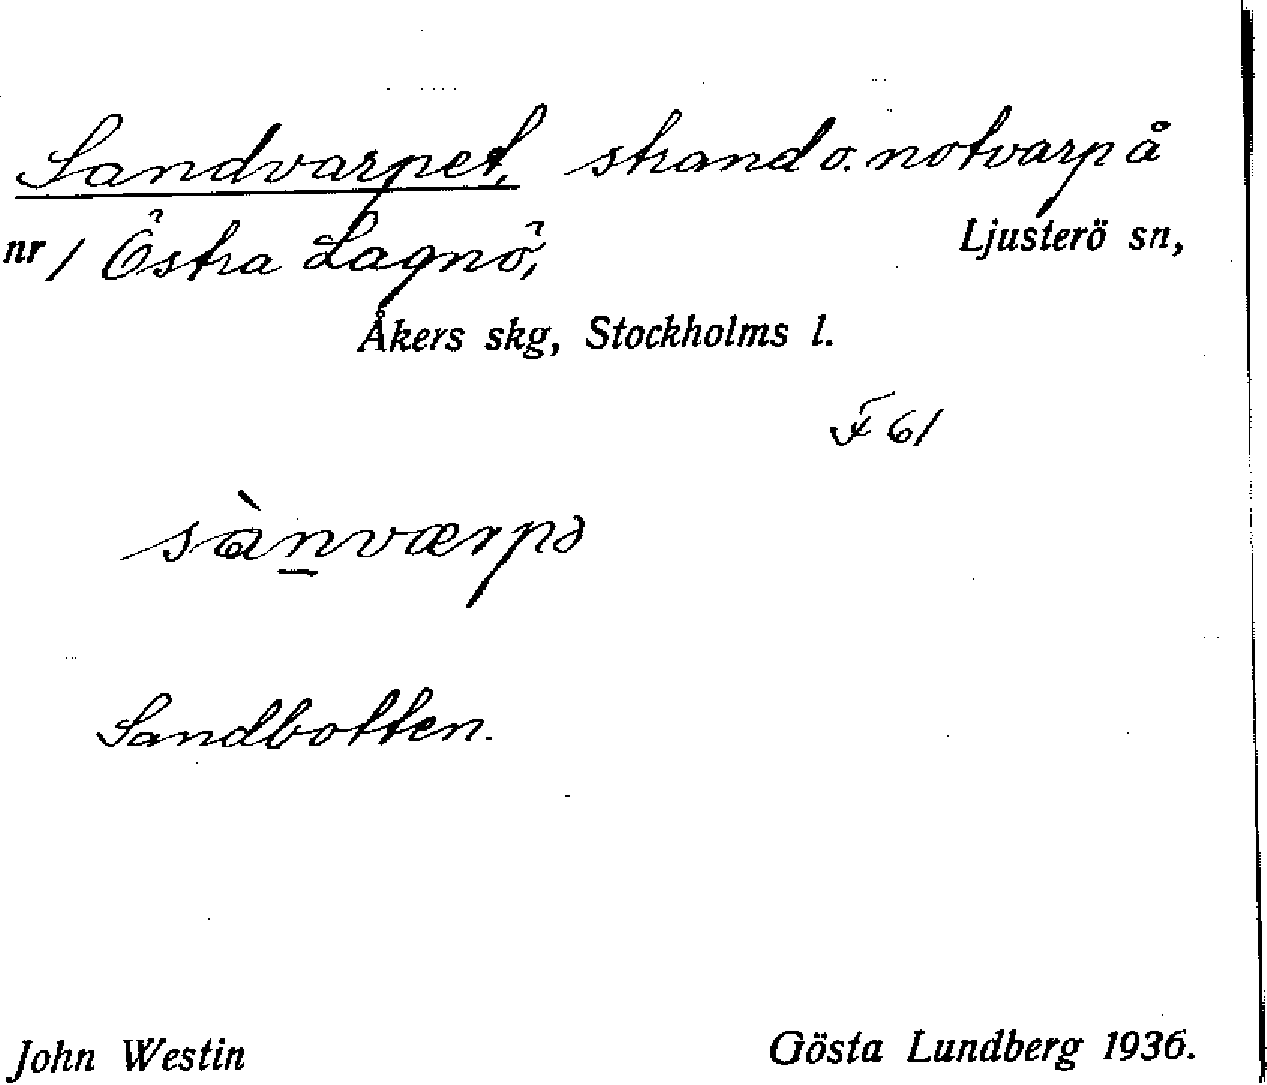 Sandvarpet, strand o. notvarp å
nr 1 Östra Lagnö, Ljusterö sn,
Åkers skg, Stockholms l.
F 61
sànværpə
Sandbotten.
John Westin Gösta Lundberg 1936.